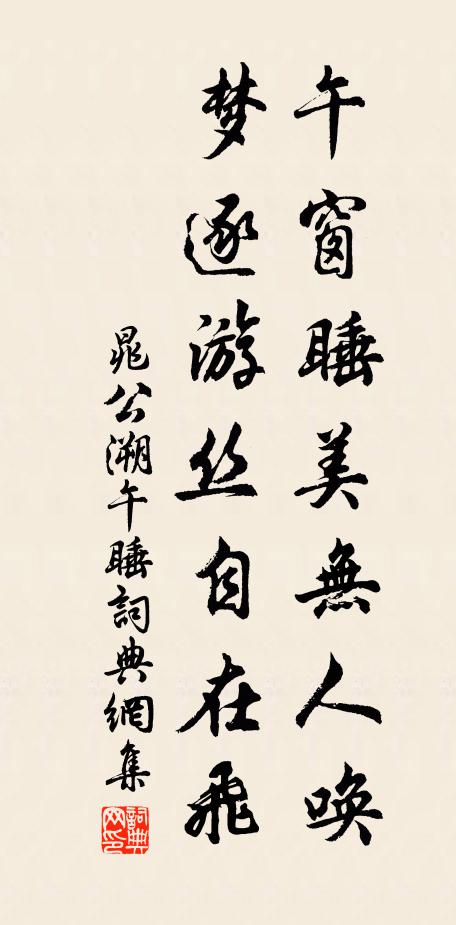 午窗睡美無人唤
梦逐游丝自在飛
晁公溯午睡詞典網集
詞典网印